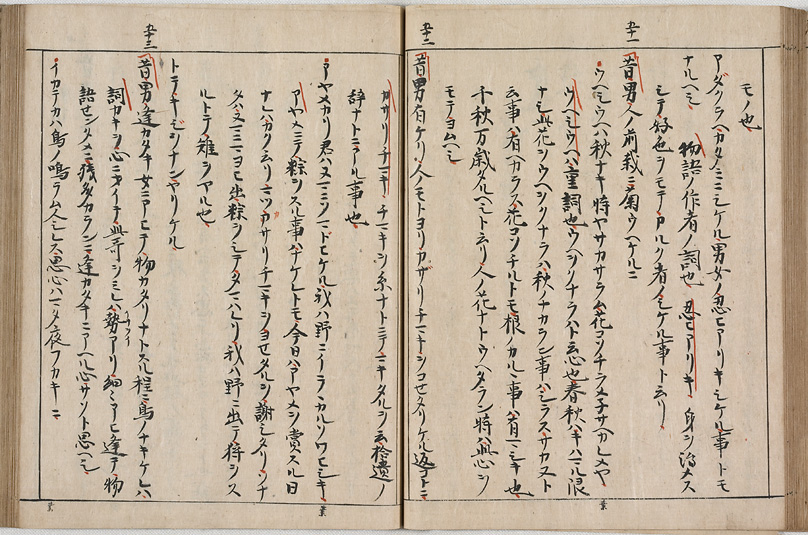 五十一
モノ也
アダクラヘカタミニシケル男女ノ忍ヒアリキシケル事トモ
ナルヘシ 物語ノ作者ノ詞也 忍ヒアリキ 身ヲ治メス
シテ好色ヲモテアルク者ノシケル事ト云リ
昔男人ノ前栽ニ菊ウヘケルニ
ウヘシウヘハ秋ナキ時ヤサカサラム花コソチラメ子サヘカレメヤ
ウヘシウヘハ重詞也ウヘシクナラハト云心也春秋ハキハマル限
ナシ此花ヲウヘシクナラハ秋ノナカラン事ハシラスサカスト
云事ハ有ヘカラス花コソチルトモ根ノカルヽ事ハ有マシキ也
千秋万歳タルヘシト云リ人ノ花ナトウヘタラン時ハ此心ヲ
モテヨムヘシ
五十二
昔男有ケリ人ノモトヨリカザリチマキヲコセタリケル返コトニ
カサリチマキ チマキヲ糸ナトニテマキタルヲ云拾遺ノ
辞ナトニアル事也
アヤメカリ君ハヌマニソマトヒケル我ハ野ニイテヽカルソワヒシキ
アヤメニテ粽ヲスル事ハナケレトモ今日ハアヤメヲ賞スル日
ナレハカク云リサツカサリチマキヲヨセタルヲ謝シタリソナ
タハヌマニマヨヒ出粽ヲシテタマハレリ我ハ野ニ出テ狩ヲス
ルトテノ雉ヲヤル也
トテキジヲナンヤリケル
五十三
昔男逢カタキ女ニアヒテ物カタリナトスル程ニ鳥ノナキケレハ
詞カキヲ心ニカケテ此哥ヲミレハ勢アリ細ニアヒ逢テ物
語セシタメニ残多カランニ逢カタキニアヘル心サソト思ヘシ
イカテカハ鳥ノ鳴ラム人シレス思心ハマタ夜フカキニ